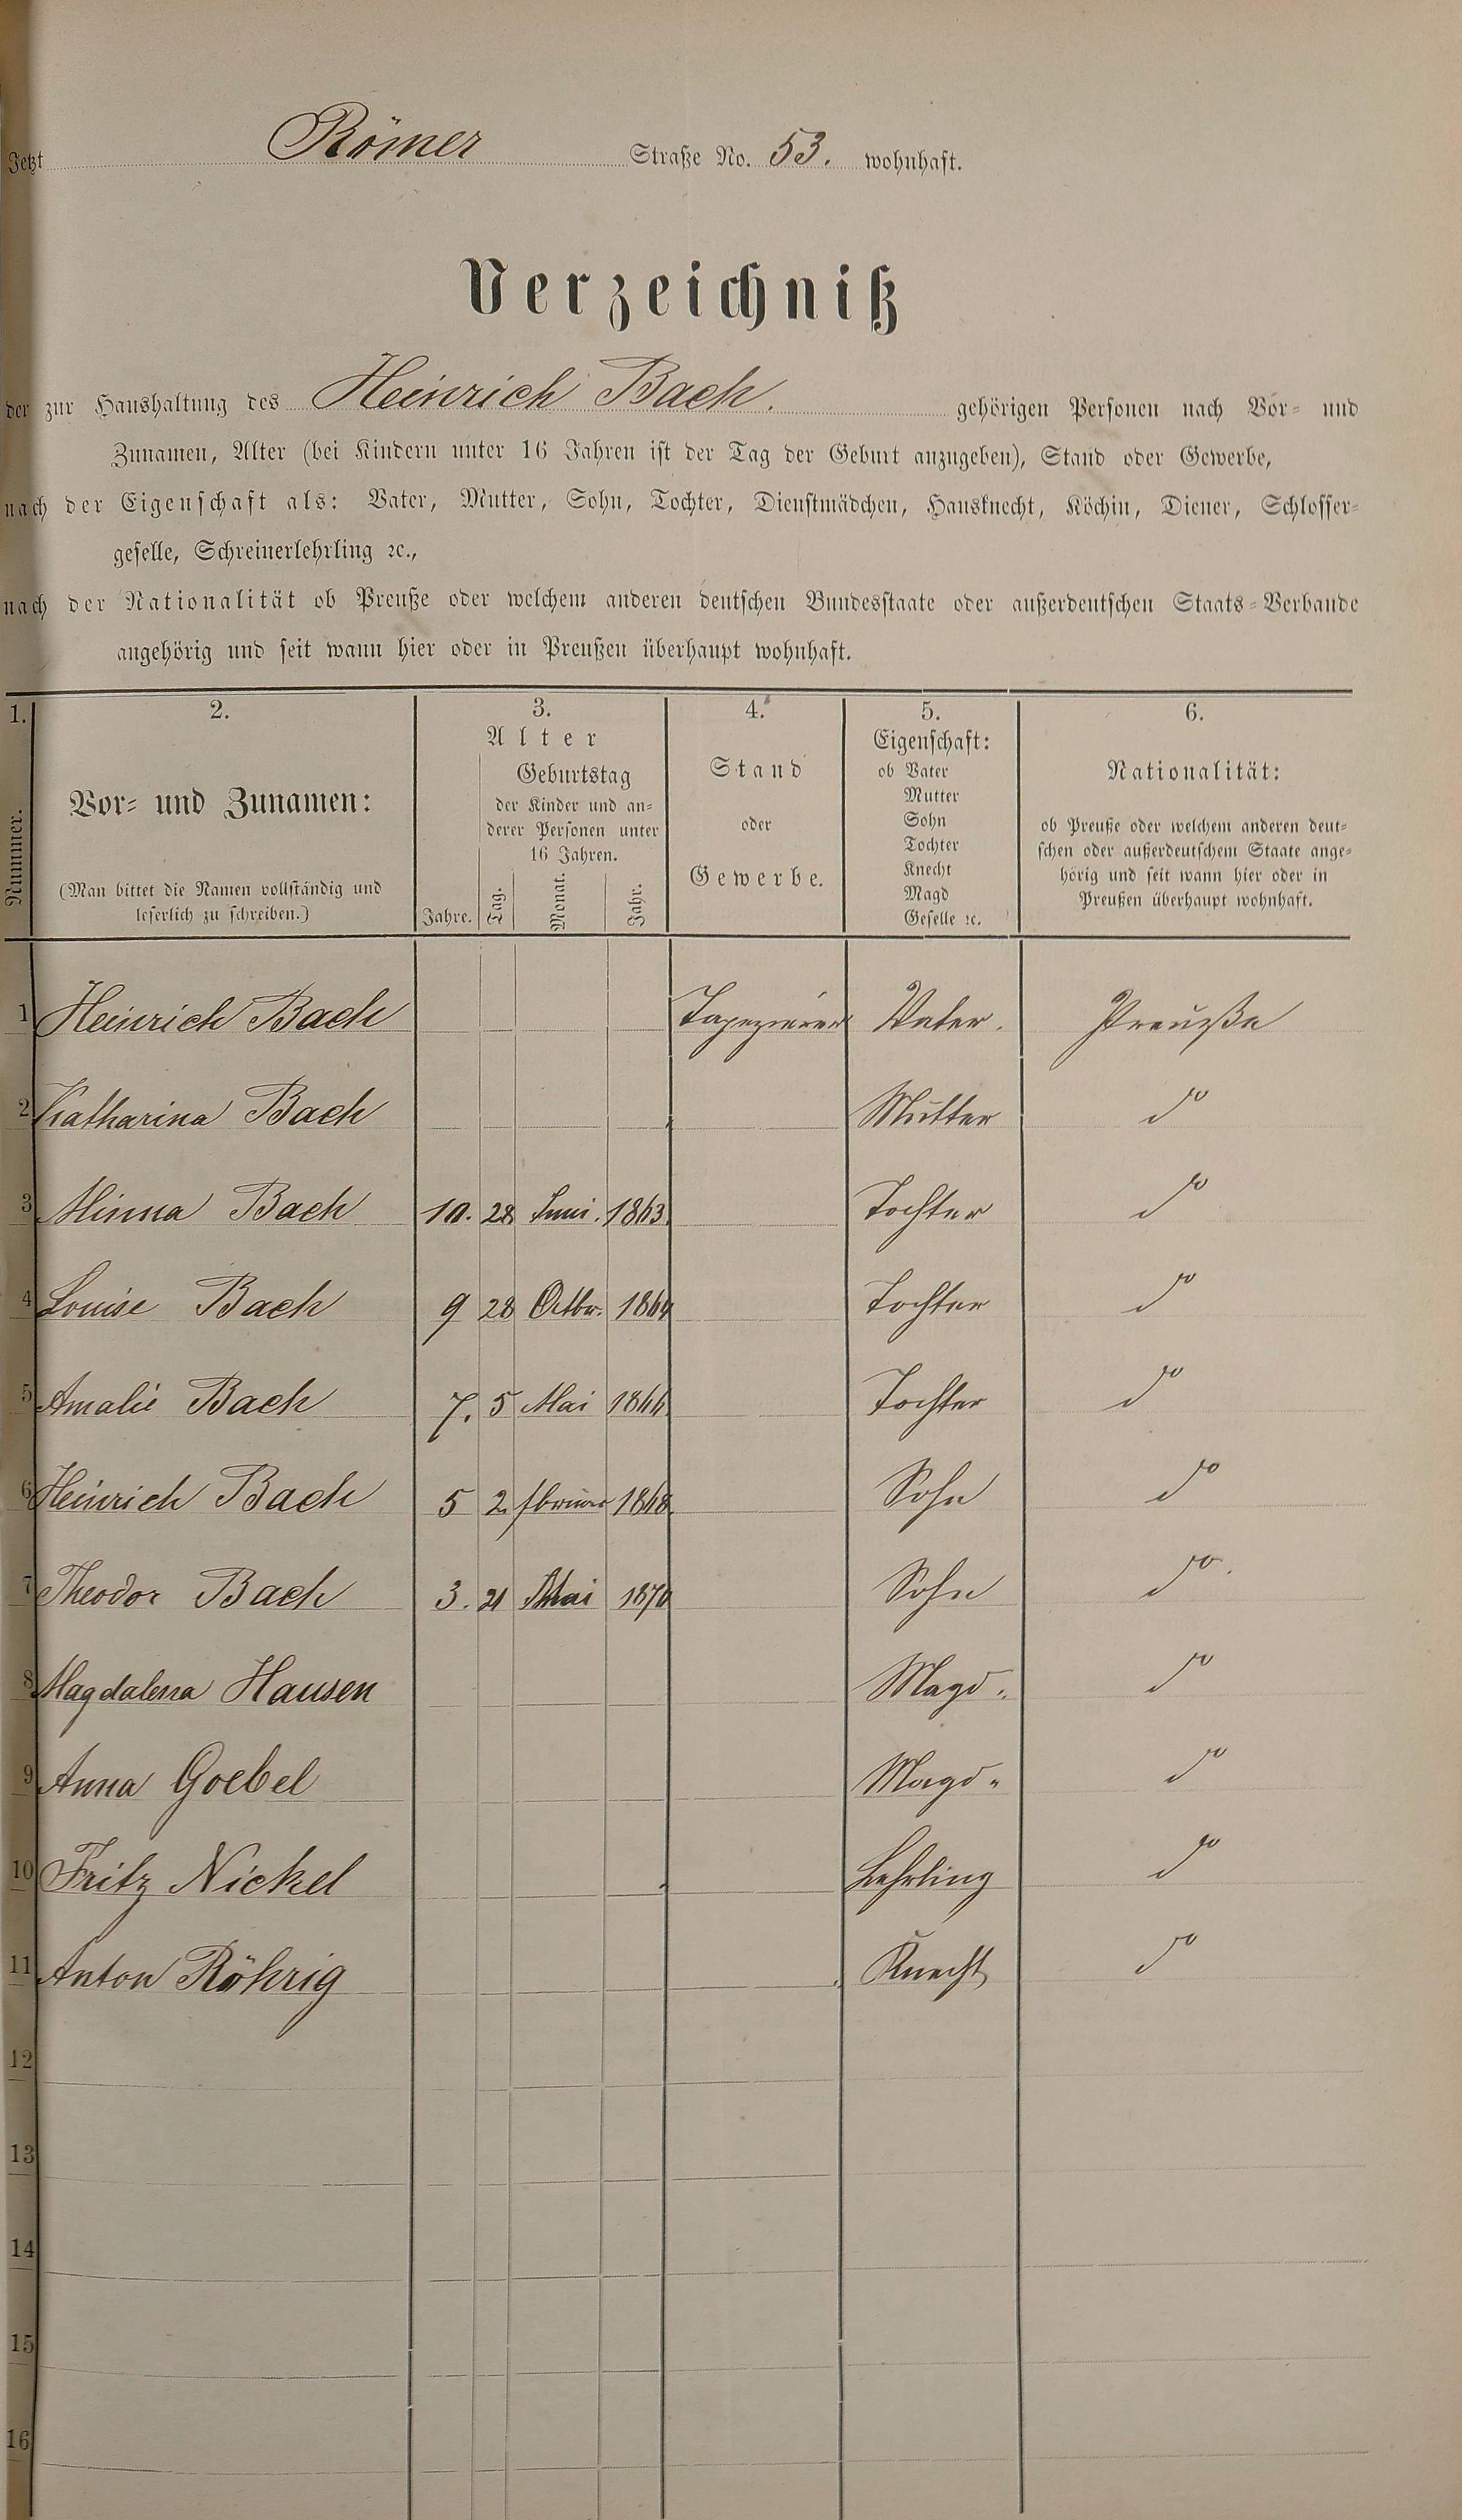 Jetzt Römer Straße No. 53. wohnhaft.
Verzeichniß
der zur Haushaltung des Heinrich Bach. gehörigen Personen nach Vor- und
Zunamen, Alter (bei Kindern unter 16 Jahren ist der Tag der Geburt anzugeben), Stand oder Gewerbe,
nach der Eigenschaft als: Vater, Mutter, Sohn, Tochter, Dienstmädchen, Hausknecht, Köchin, Diener, Schlosser-
geselle, Schreinerlehrling ꝛc.,
nach der Nationalität ob Preuße oder welchem anderen deutschen Bundesstaate oder außerdeutschen Staats-Verbande
angehörig und seit wann hier oder in Preußen überhaupt wohnhaft.
1. 2. 3. 4. 5. 6.
Nummer.
Vor- und Zunamen:
(Man bittet die Namen vollständig und
leserlich zu schreiben.)
Alter
Geburtstag
der Kinder und an-
derer Personen unter
16 Jahren.
Jahre. Tag. Monat. Jahr.
Stand
oder
Gewerbe.
Eigenschaft:
ob Vater
Mutter
Sohn
Tochter
Knecht
Magd
Geselle ꝛc.
Nationalität:
ob Preuße oder welchem anderen deut-
schen oder außerdeutschem Staate ange-
hörig und seit wann hier oder in
Preußen überhaupt wohnhaft.
1 Heinrich Bach Tapezierer Vater. Preuße
2 Katharina Bach Mutter do
3 Minna Bach 10. 28 Juni. 1863. Tochter do
4 Louise Bach 9 28 Octbr. 1864 Tochter do
5 Amalie Bach 7. 5 Mai 1866 Tochter do
6 Heinrich Bach 5 2. 1868. Sohn do
7 Theodor Bach 3. 21 Mai 1870 Sohn do.
8 Magdalena Hausen Magd. do
9 Anna Goebel Magd. do
10 Fritz Nickel Lehrling do
11 Anton Röhrig Knecht do
12
13
14
15
16